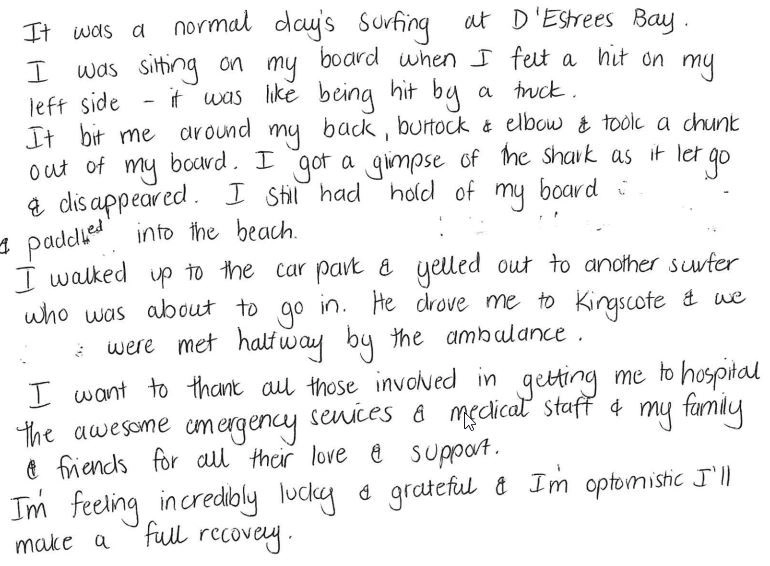 It was a normal day's surfing at D'Estrees Bay.
I was sitting on my board when I felt a hit on my
left side - it was like being hit by a truck.
It bit me around my back, buttock & elbow & took a chunk
out of my board. I got a glimpse of the shark as it let go
& disappeared. I still had hold of my board
& paddled into the beach.
I walked up to the car park & yelled out to another surfer
who was about to go in. He drove me to Kingscote & we
were met halfway by the ambalance.
I want to thank all those involved in getting me to hospital
the awesome emergency services & medical staff & my family
& friends for all their love & support.
I'm feeling incredibly lucky & grateful & I'm optomistic I'll
make a full recovery.